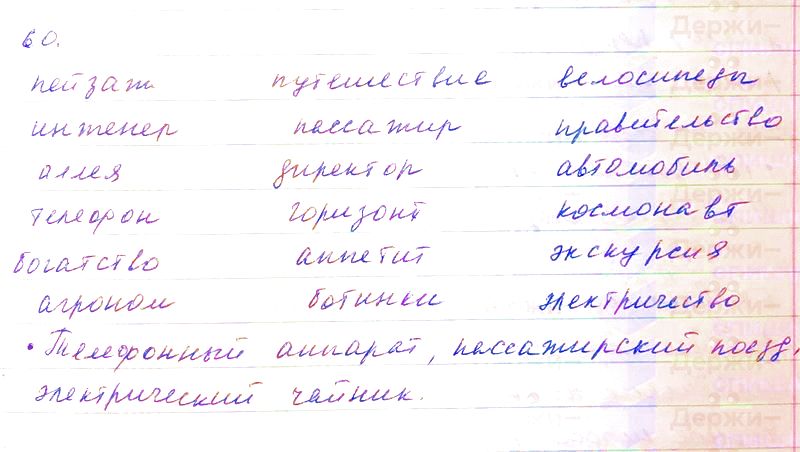 60.
пейзаж путешествие велосипеды
инженер пассажир правительство
аллея директор автомобиль
телефон горизонт космонавт
богатство аппетит экскурсия
агроном ботинки электричество
• Телефонный аппарат, пассажирский поезд,
электрический чайник.
Держи-
Держи-